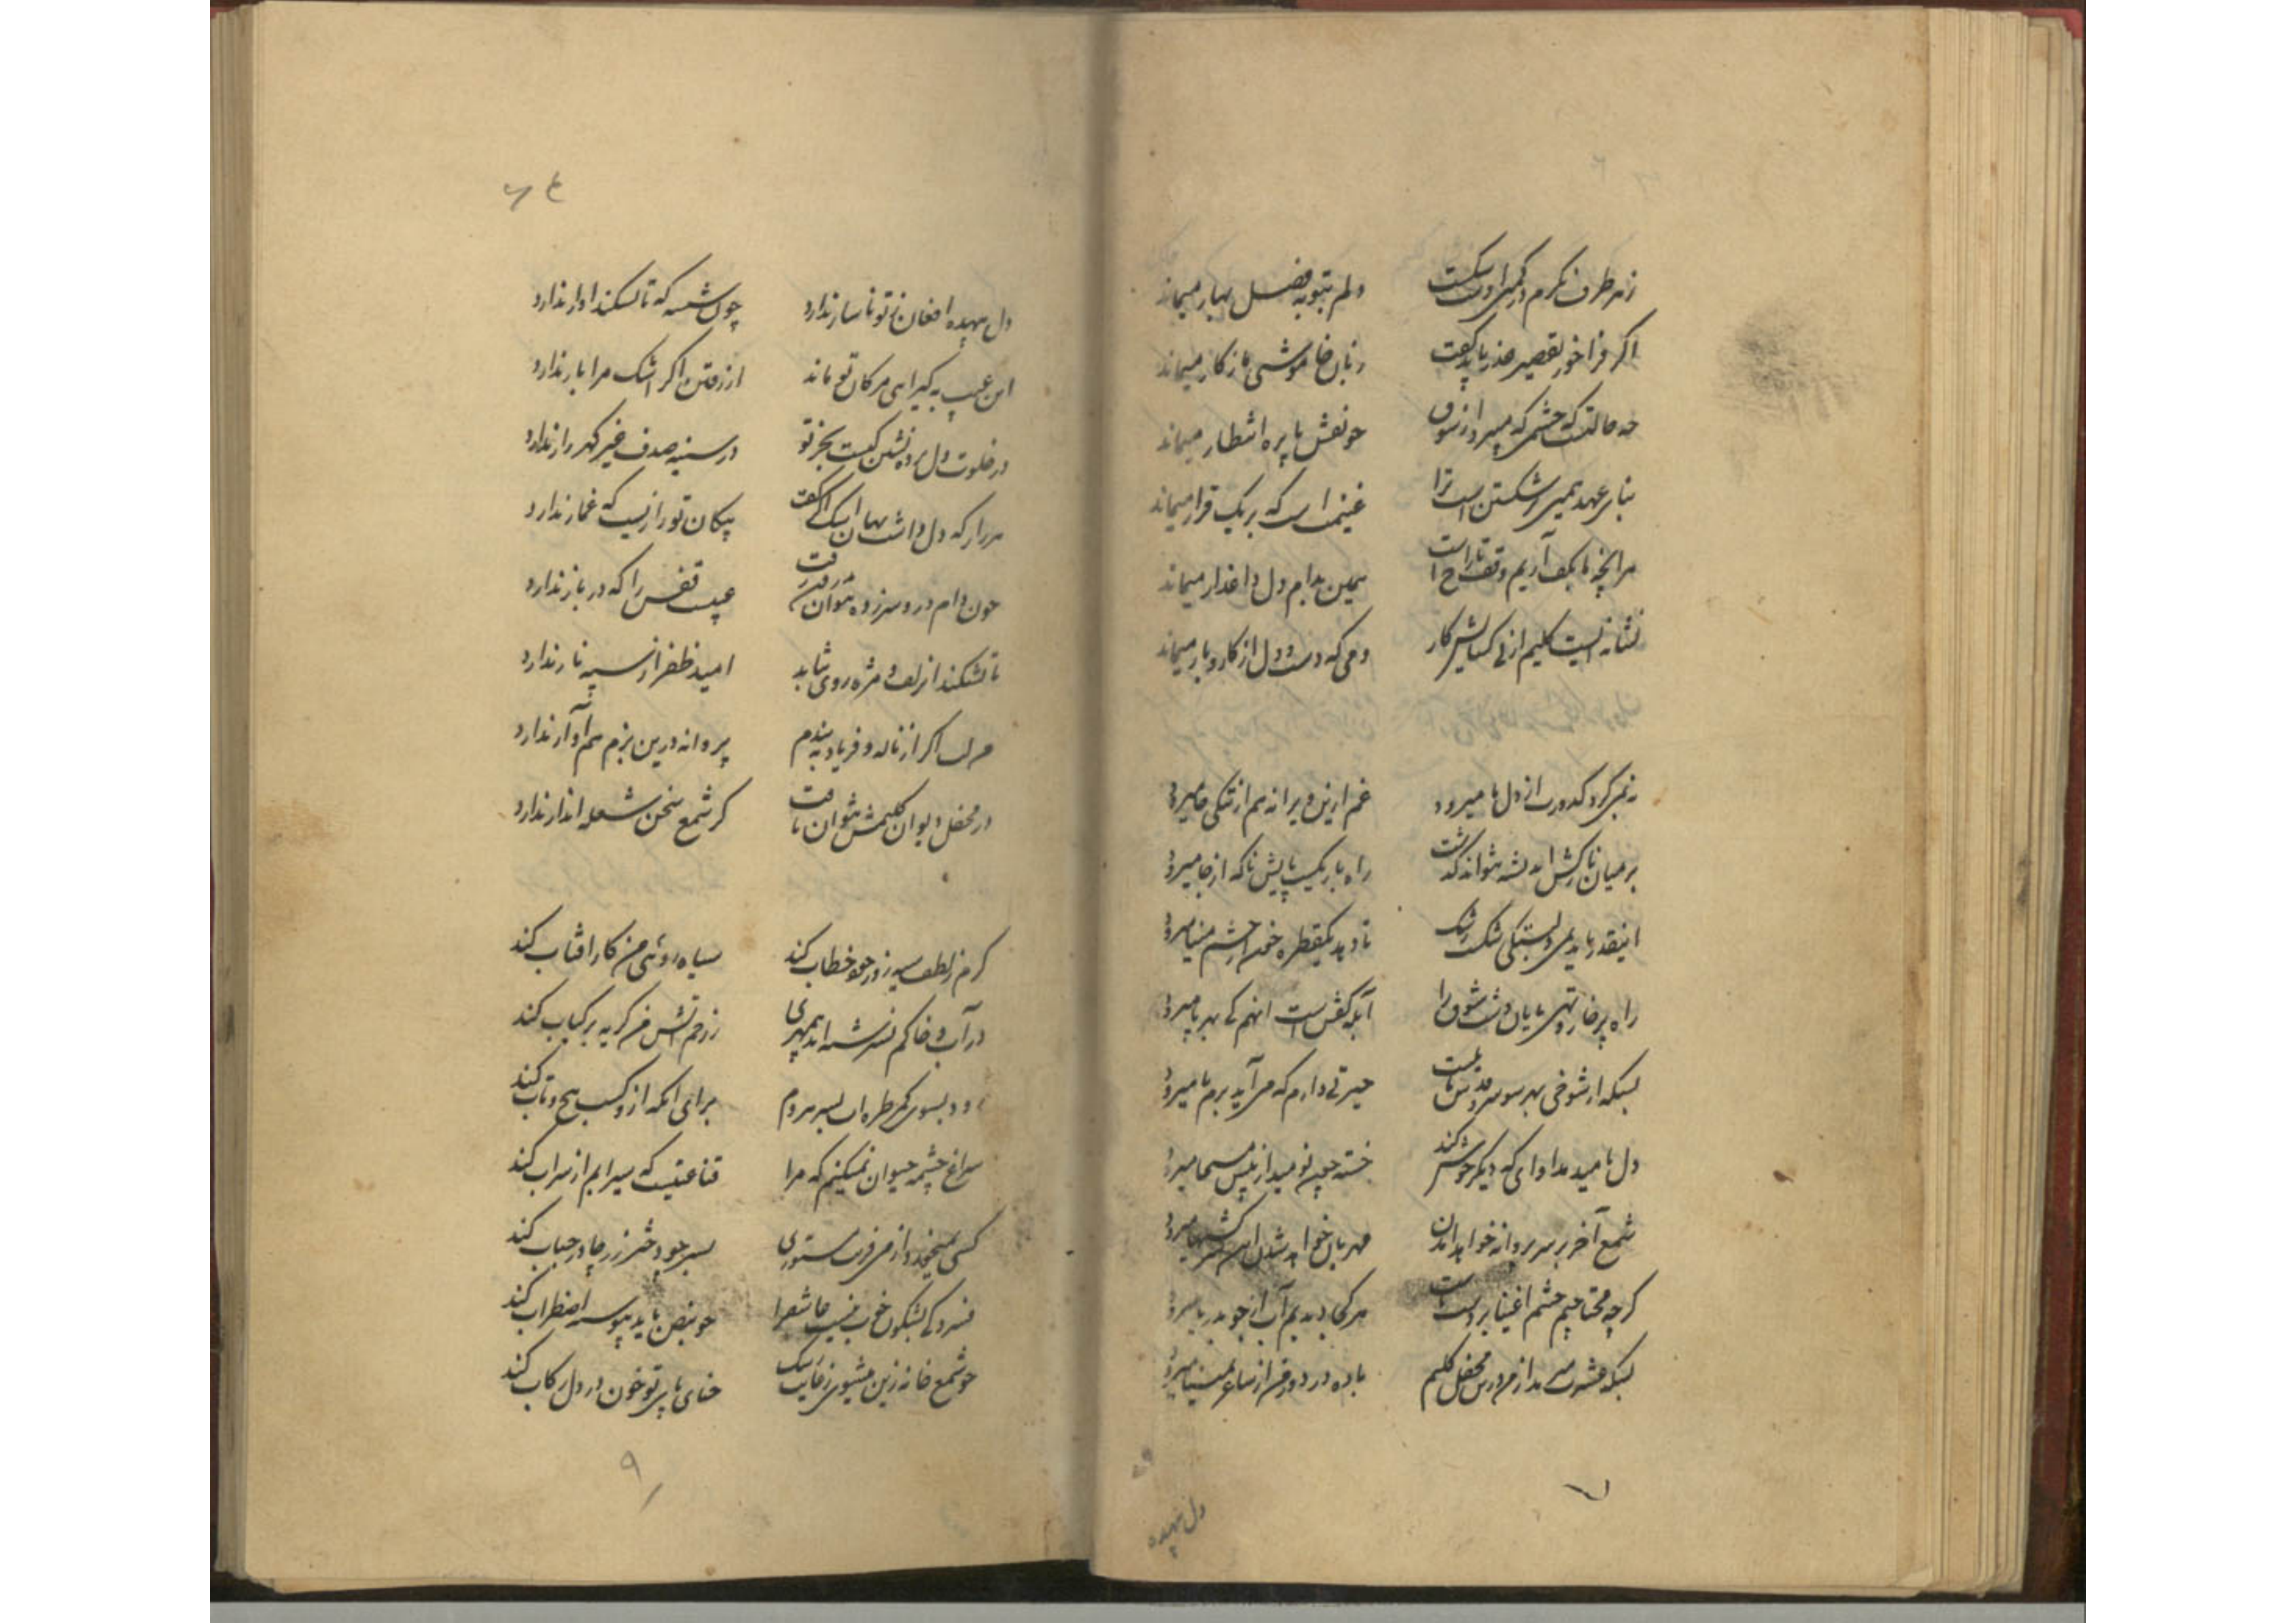 دلم بتوبه فصل بهار میماند
اگر فراخور تقصیر عذر باید گفت زبان خاموشی از کار میماند
چه حالتست که چشمی که میپرد از شوق چو نقش پا بره انتظار میماند
بنای عهد شکستن است ترا غنیمت است که بر یک قرار میماند
هر آنچه ما بکف آریم وقف تاراج است همین بدام دل داغدار میماند
نشانه نیست کلیم از پی کشایش کار دمی که دست و دل از کار و بار میماند
نه همین گرد کدورت از دل ما میرود غم ازین ویرانه هم از تنگی جا میرود
بر میان نازکش اندیشه نتواند گذشت راه باریکست پایش ناگه از جا میرود
اینقدر باید بدلبستگی اشک رشک تا دود یکقطره خون از چشم مینا میرود
راه پر خار و تهی پایان دشت شوق را آبله کفش است آنهم کی بهر پا میرود
بسکه از شوخی بهر سو حیرتی دارم که می آید برم یا میرود
دل بامید مداوای که دیگر خوش کند خسته چون نومید از پیش مسیحا میرود
شمع آخر بر سر پروانه خواهد آمدن مهربان خواهد شدن
گرچه محتاجیم چشم اغنیا بر دست ماست هر کجا دیدیم آب از جو بدریا میرود
بسکه عشرت میرمد از من درین محفل کلیم باده در دور من از ساغر بمینا میرود
دل تپیده
دل تپیده افغان ز تو ناساز ندارد چون شیشه که تا نشکند آواز ندارد
این عیب به گیرایی مژگان تو ماند از رفتن اگر اشک مرا باز ندارد
در خلوت دل پرده نشین کیست بجز تو در سینه صدف غیر گهر راز ندارد
هر راز که دل داشت پیکان تو رازیست که غماز ندارد
چون دام در و سر زده نتوان رفت عیبست قفس را که در باز ندارد
تا نشکند از زلف و مژه روی نتابد امید ظفر از سپه ناز ندارد
من لب اگر از ناله و فریاد ببندم پروانه درین بزم هم آواز ندارد
در محفل دیوان کلیمش نتوان یافت گر شمع سخن شعله انداز ندارد
کرم ز لطف سیه روز چو خطاب کند سیاه روئی من کار آفتاب کند
در آب و خاکم نسرشته اند بیمهری ز زخم آتش من گریه بر کباب کند
برای آنکه ازو کسب پیچ و تاب کند
سراغ چشمه حیوان نمیکنم که مرا قناعتیست که سیرابم از سراب کند
کسی نمیخرد از من فریب مستوری بسر چو دختر رز چادر حباب کند
فسردگی بشگون خوب نیست عاشق را چو نبض باید پیوسته اضطراب کند
چو شمع خانه زین میشوی ز غایت رشک حنای پای تو خون در دل رکاب کند